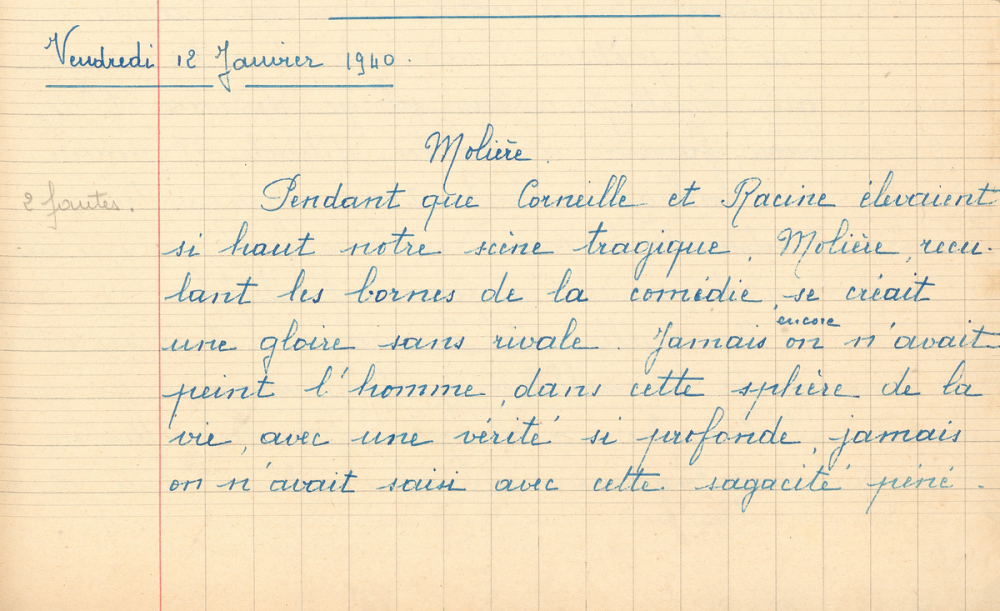 Vendredi 12 Janvier 1940.
Molière.
2 fautes.
Pendant que Corneille et Racine élevaient
si haut notre scène tragique, Molière, recu-
lant les bornes de la comédie, se créait
une gloire sans rivale. Jamais encore on n'avait
peint l'homme, dans cette sphère de la
vie, avec une vérité si profonde, jamais
on n'avait saisi avec cette sagacité péné-